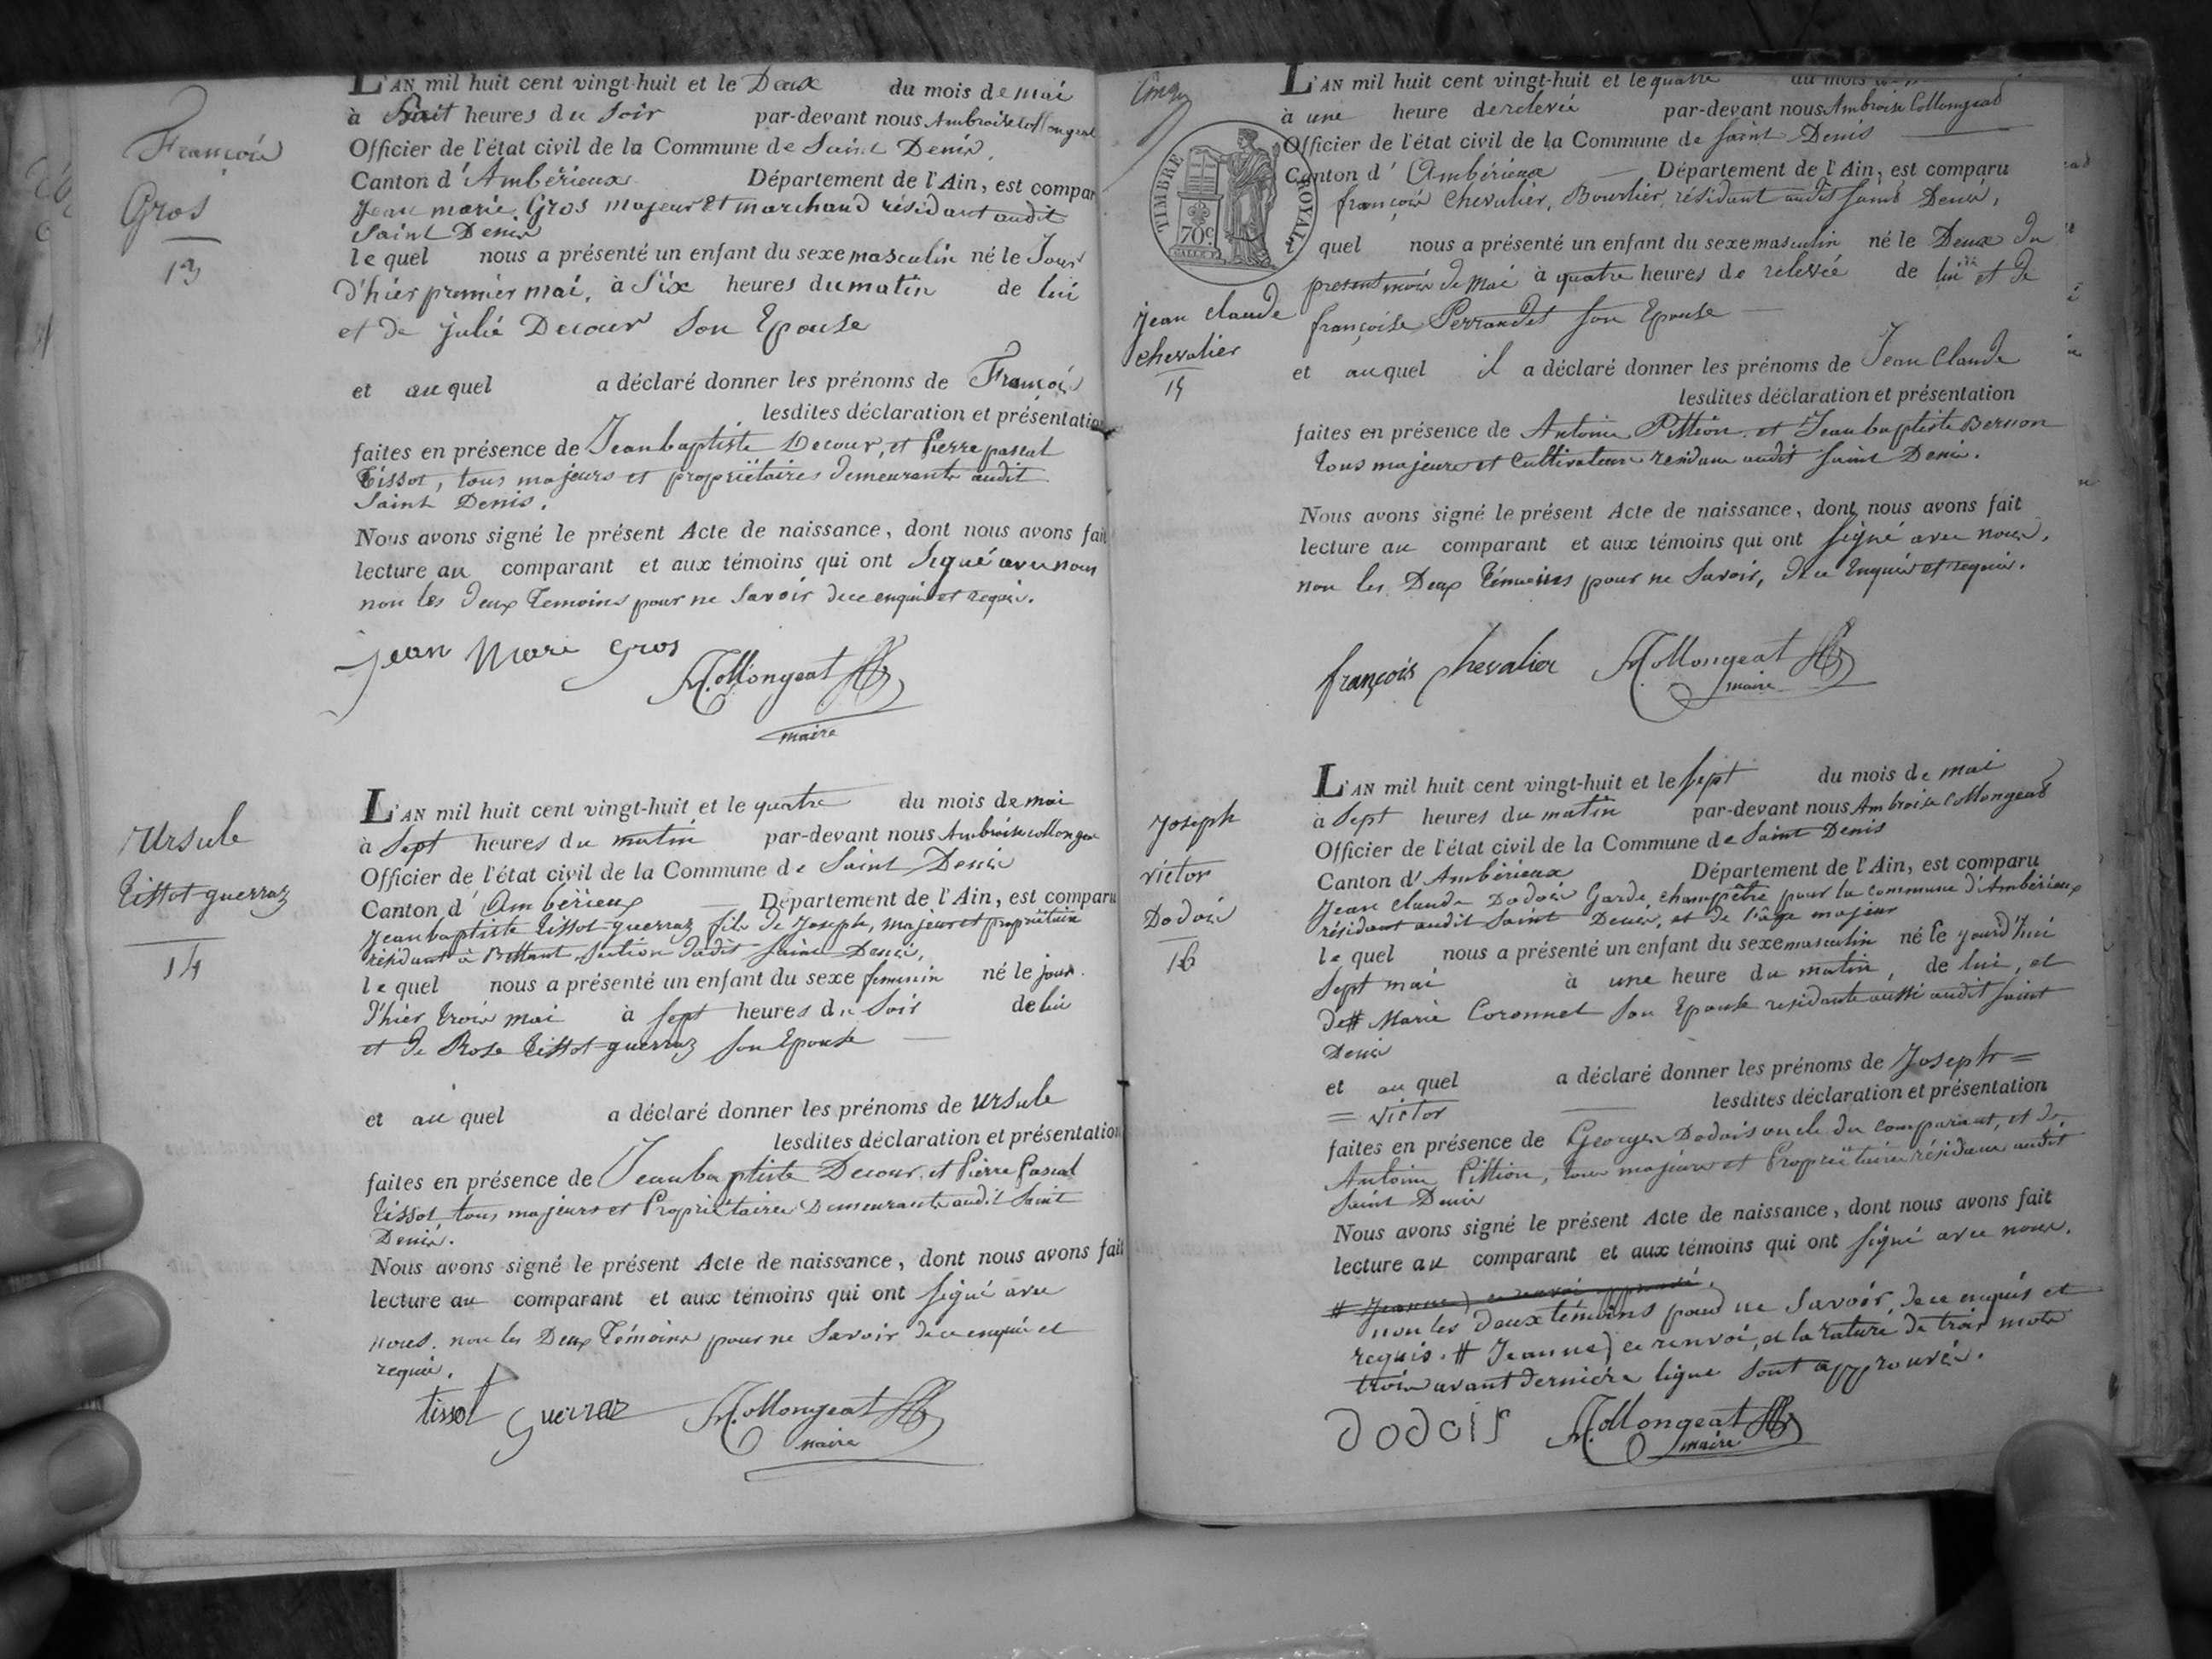 François
Gros
13
L'AN mil huit cent vingt-huit et le Deux du mois de mai
à huit heures du soir par-devant nous Ambroise Collongeat
Officier de l'état civil de la Commune de Saint Denis,
Canton d'Ambérieux Département de l'Ain, est compar
Jean marie Gros majeur et marchand résidant audit
Saint Denis
lequel nous a présenté un enfant du sexe masculin né le Jour
d'hier premier mai, à Six heures du matin de lui
et de julie Decour son Epouse
et auquel a déclaré donner les prénoms de François
lesdites déclaration et présentation
faites en présence de Jean baptiste Decour, et Pierre pascal
Tissot, tous majeurs et propriétaires demeurants audit
Saint Denis.
Nous avons signé le présent Acte de naissance, dont nous avons fait
lecture au comparant et aux témoins qui ont signé avec nous
non les deux temoins pour ne savoir de ce enquis et requis.
jean Mari gros
A. Collongeat
maire
Ursule
Tissot-guerraz
14
L'AN mil huit cent vingt-huit et le quatre du mois de mai
à sept heures du matin par-devant nous Ambroise collongea
Officier de l'état civil de la Commune de Saint Denis
Canton d'Ambérieux Département de l'Ain, est comparu
Jean baptiste Tissot-guerraz fils de Joseph, majeur et propriétaire
résidant à Bettant, section dudit Saint Denis,
lequel nous a présenté un enfant du sexe feminin né le jour
d'hier trois mai à sept heures du soir de lui
et de Rose Tissot-guerraz son Epouse
et auquel a déclaré donner les prénoms de ursule
lesdites déclaration et présentation
faites en présence de Jean baptiste Decour, et Pierre Pascal
Tissot, tous majeurs et Propriétaires Demeurants audit Saint
Denis.
Nous avons signé le présent Acte de naissance, dont nous avons fait
lecture au comparant et aux témoins qui ont signé avec
nous. non les Deux Témoins pour ne savoir de ce enquis et
requis.
tissot guerraz
A. Collongeat
maire
Cinq
TIMBRE ROYAL
70c
jean claude
chevalier
15
L'AN mil huit cent vingt-huit et le quatre du mois
à une heure de relevée par-devant nous Ambroise Collongeat
Officier de l'état civil de la Commune de Saint Denis
Canton d'Ambérieux Département de l'Ain, est comparu
françois Chevalier, Bourlier, résidant audit Saint Denis,
quel nous a présenté un enfant du sexe masculin né le Deux du
present mois de Mai à quatre heures de relevée de lui et de
françoise Perrandet son Epouse
et auquel il a déclaré donner les prénoms de Jean Claude
lesdites déclaration et présentation
faites en présence de Antoine Pittion et Jean baptiste Bernon
tous majeurs et Cultivateurs residans audit Saint Denis.
Nous avons signé le présent Acte de naissance, dont nous avons fait
lecture au comparant et aux témoins qui ont signé avec nous,
non les Deux témoins pour ne savoir, de ce Enquis et requis.
françois chevalier
A. Collongeat
maire
Joseph
victor
Dodois
16
L'AN mil huit cent vingt-huit et le sept du mois de mai
à sept heures du matin par-devant nous Ambroise Collongeat
Officier de l'état civil de la Commune de Saint Denis
Canton d'Ambérieux Département de l'Ain, est comparu
Jean Claude Dodois Garde champêtre pour la commune d'Ambérieux
résidant audit Saint Denis, et de l'âge majeur
lequel nous a présenté un enfant du sexe masculin né le jourd'hui
Sept mai à une heure du matin, de lui, et
de # Marie Coronnet son Epouse residante aussi audit Saint
Denis
et auquel a déclaré donner les prénoms de Joseph =
= victor lesdites déclaration et présentation
faites en présence de Georges Dodois oncle du comparant, et de
Antoine Pittion, tous majeurs et Propriétaires résidans audit
Saint Denis
Nous avons signé le présent Acte de naissance, dont nous avons fait
lecture au comparant et aux témoins qui ont signé avec nous.
# Jeanne) ce renvoi approuvé.
non les deux témoins pour ne savoir, de ce enquis et
requis. # Jeanne) ce renvoi, et la rature de trois mots
trois avant dernière ligne sont approuvés.
dodois
A. Collongeat
maire